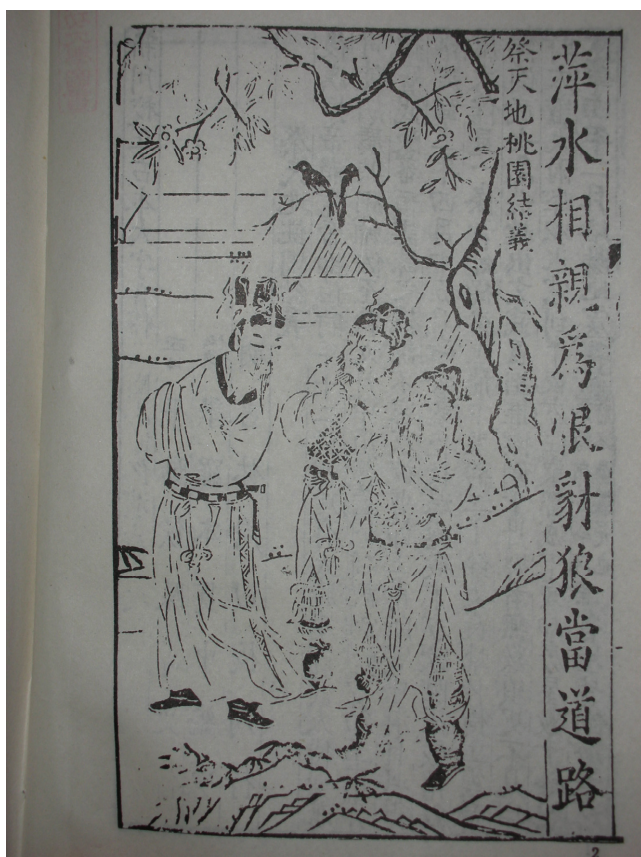 萍水相親爲恨豺狼當道路
祭天地桃園結義
2